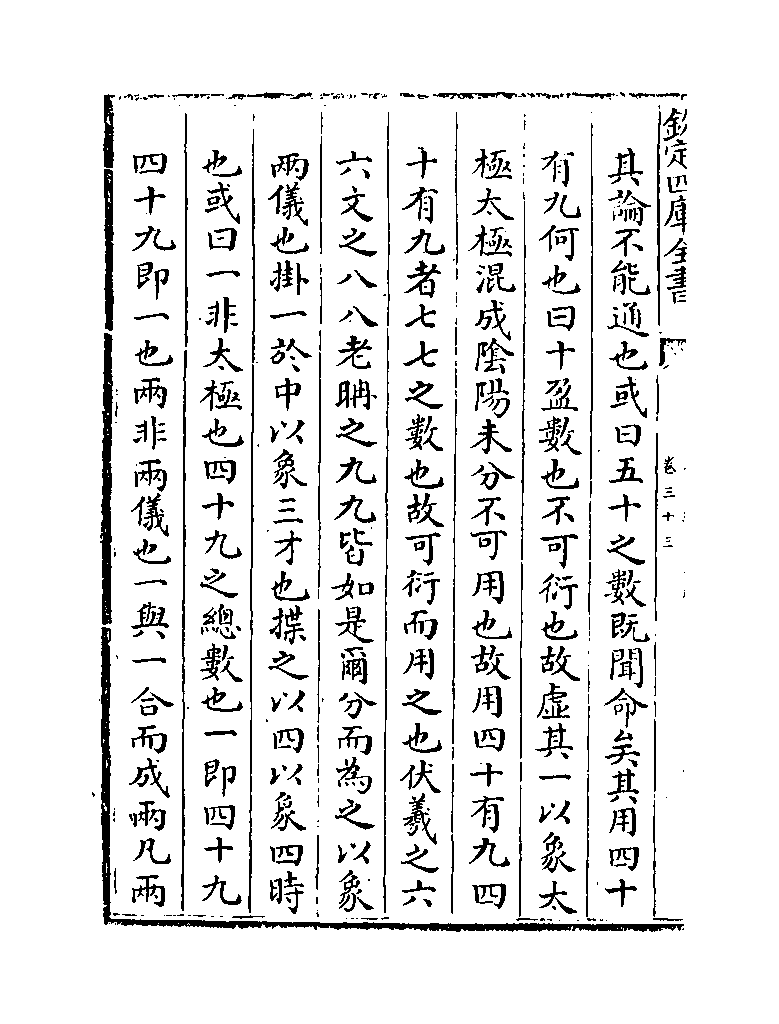 欽定四庫全書
卷三十三
其論不能通也或曰五十之數既聞命矣其用四十
有九何也曰十盈數也不可衍也故虛其一以象太
極太極混成陰陽未分不可用也故用四十有九四
十有九者七七之數也故可衍而用之也伏羲之六
六文之八八老聃之九九皆如是爾分而為之以象
兩儀也掛一於中以象三才也揲之以四以象四時
也或曰一非太極也四十九之總數也一即四十九
四十九即一也兩非兩儀也一與一合而成兩凡兩